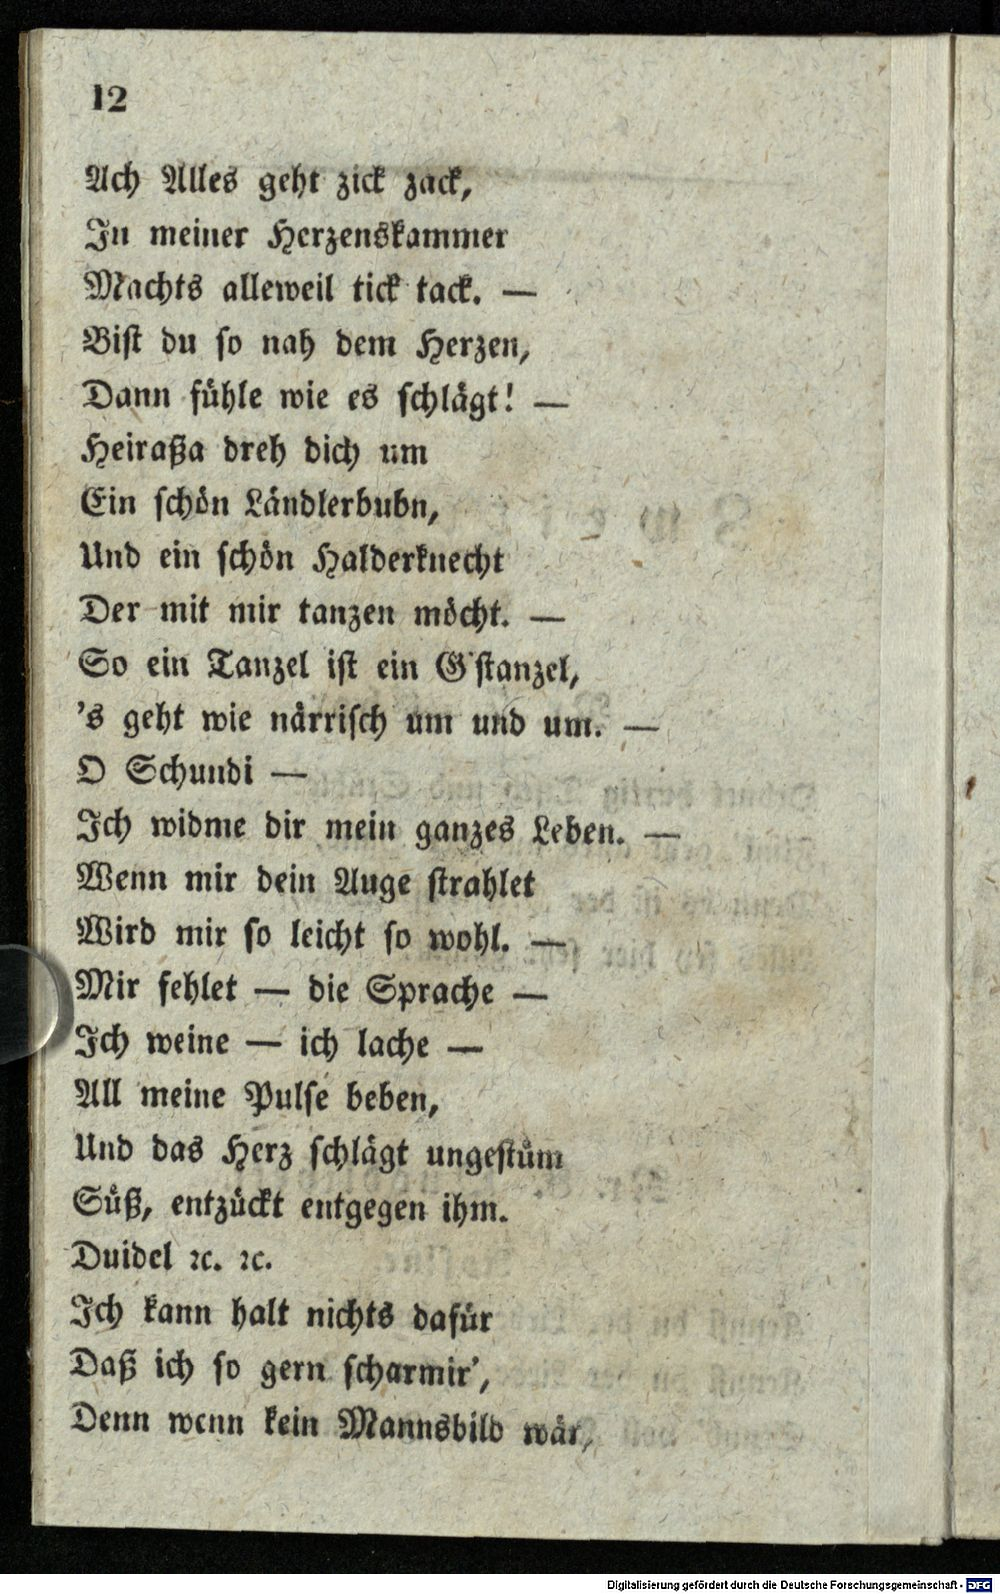 12
Ach Alles geht zick zack,
In meiner Herzenskammer
Machts alleweil tick tack. —
Bist du so nah dem Herzen,
Dann fühle wie es schlägt! —
Heiraßa dreh dich um
Ein schön Ländlerbubn,
Und ein schön Halderknecht
Der mit mir tanzen möcht. —
So ein Tanzel ist ein G'stanzel,
's geht wie närrisch um und um. —
O Schundi —
Ich widme dir mein ganzes Leben. —
Wenn mir dein Auge strahlet
Wird mir so leicht so wohl. —
Mir fehlet — die Sprache —
Ich weine — ich lache —
All meine Pulse beben,
Und das Herz schlägt ungestüm
Süß, entzückt entgegen ihm.
Duidel ꝛc. ꝛc.
Ich kann halt nichts dafür
Daß ich so gern scharmir',
Denn wenn kein Mannsbild wär,
Digitalisierung gefördert durch die Deutsche Forschungsgemeinschaft - DFG